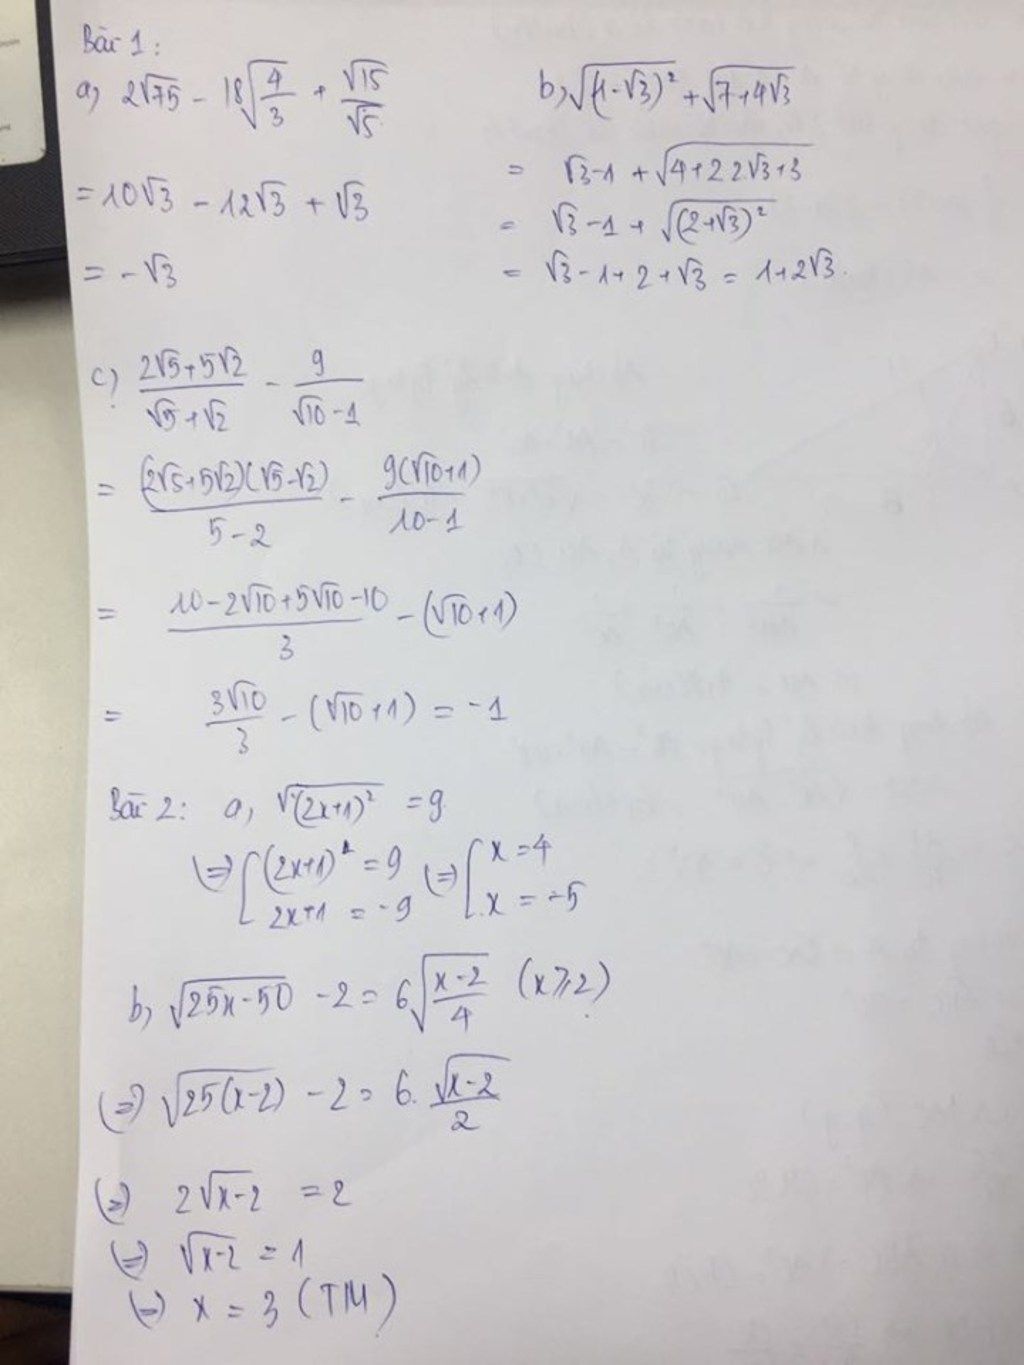 Bài 1:
a, 2√75 - 18√(4/3) + √15/√5
= 10√3 - 12√3 + √3
= -√3
b, √(1-√3)² + √7+4√3
= √3-1 + √4+2 2√3+3
= √3-1 + √(2+√3)²
= √3-1+2+√3 = 1+2√3.
c) (2√5+5√2)/(√5+√2) - 9/(√10-1)
= (2√5+5√2)(√5-√2)/(5-2) - 9(√10+1)/(10-1)
= (10-2√10+5√10-10)/3 - (√10+1)
= 3√10/3 - (√10+1) = -1
Bài 2: a, √(2x+1)² = 9
(=) [ (2x+1) = 9 (=) [ x = 4
2x+1 = -9 x = -5
b, √25x-50 - 2 = 6√((x-2)/4) (x⩾2)
(=) √25(x-2) - 2 = 6. √x-2/2
(=) 2√x-2 = 2
(=) √x-2 = 1
(=) x = 3 (TM)